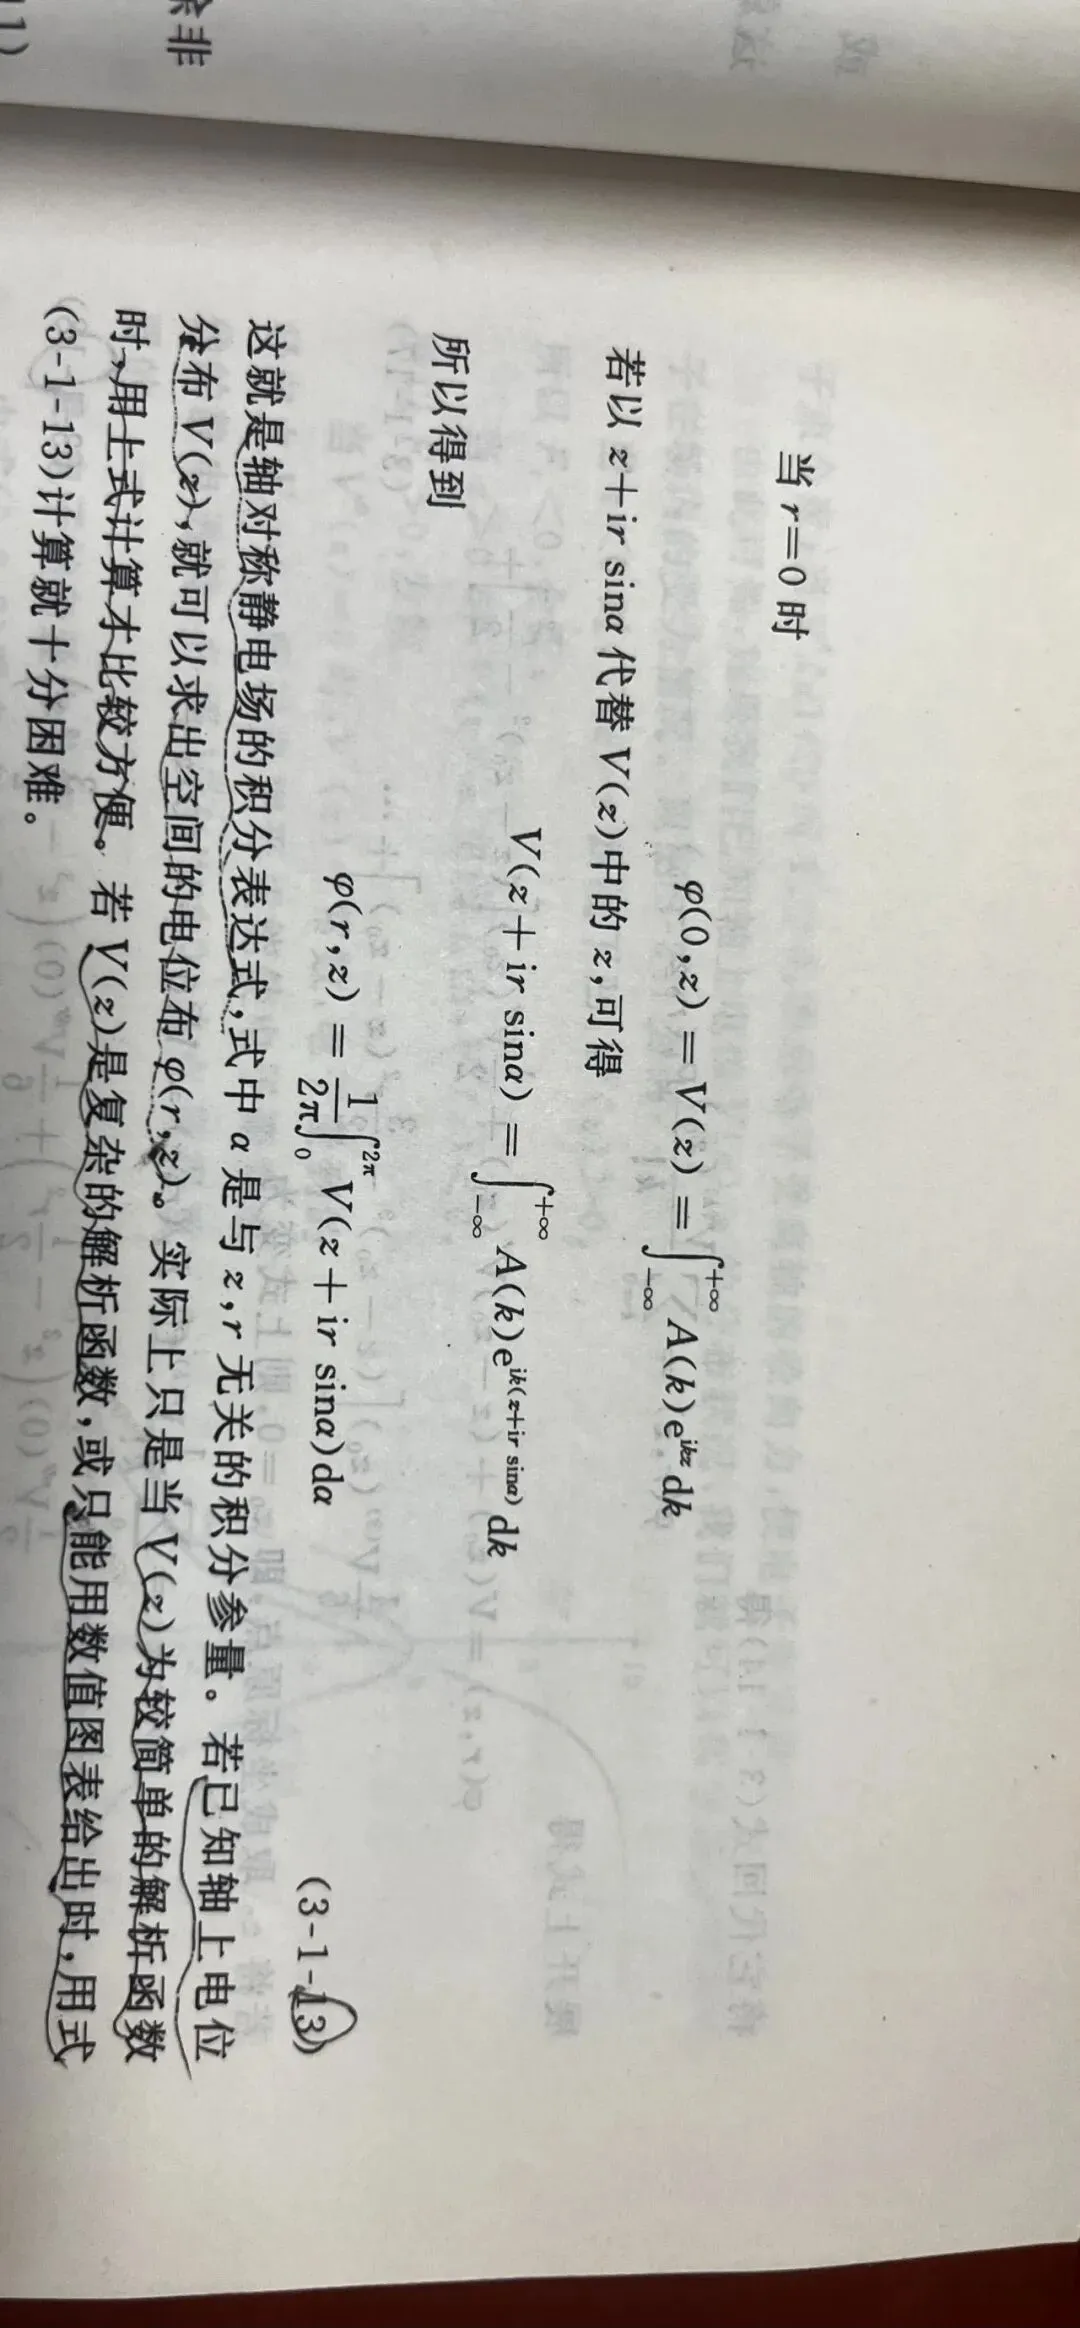 余非
11)
当 r=0 时
φ(0,z)=V(z)=∫₋∞⁺∞ A(k)e^{ikz}dk
若以 z+ir sinα 代替 V(z)中的 z,可得
V(z+ir sinα)=∫₋∞⁺∞ A(k)e^{ik(z+ir sinα)}dk
所以得到
φ(r,z)=1/2π ∫₀^{2π} V(z+ir sinα)dα (3-1-13)
这就是轴对称静电场的积分表达式,式中 α 是与 z,r 无关的积分参量。若已知轴上电位
分布 V(z),就可以求出空间的电位布 φ(r,z)。实际上只是当 V(z)为较简单的解析函数
时,用上式计算才比较方便。若 V(z)是复杂的解析函数,或只能用数值图表给出时,用式
(3-1-13)计算就十分困难。